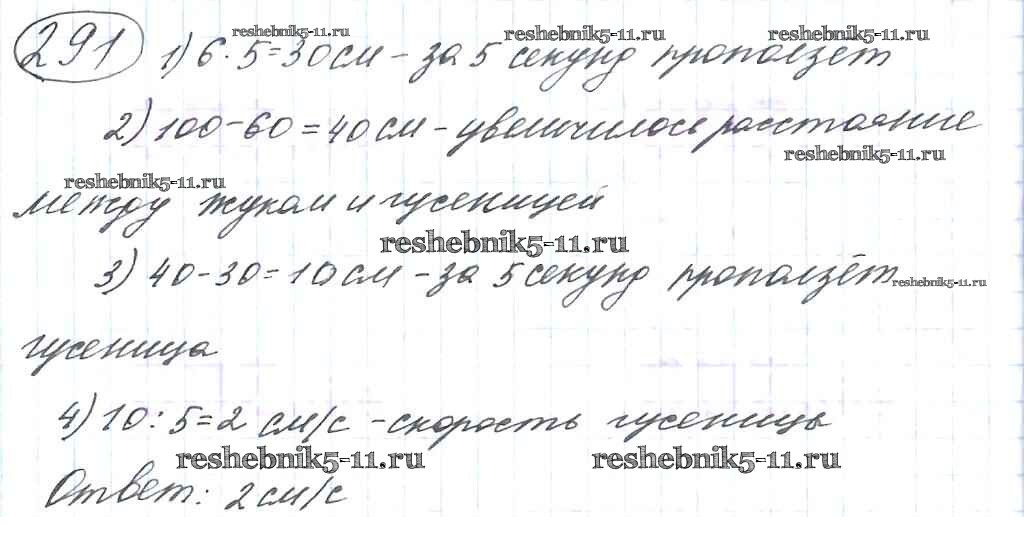 reshebnik5-11.ru reshebnik5-11.ru reshebnik5-11.ru
291 1) 6·5=30см – за 5 секунд проползёт
2) 100-60=40см – увеличилось расстояние
reshebnik5-11.ru
reshebnik5-11.ru
между жуком и гусеницей
reshebnik5-11.ru
3) 40-30=10см – за 5 секунд проползёт
reshebnik5-11.ru
гусеница
4) 10:5=2 см/с – скорость гусеницы
reshebnik5-11.ru reshebnik5-11.ru
Ответ: 2см/с